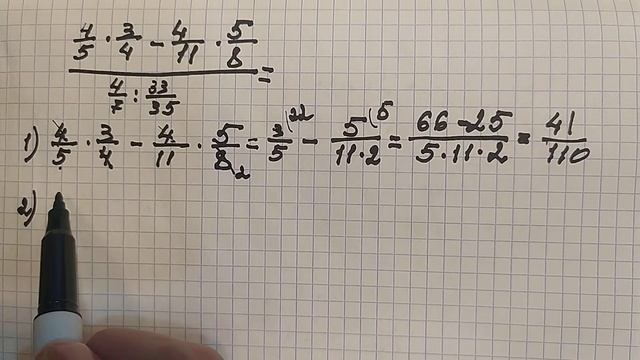 4/5 · 3/4 - 4/11 · 5/8
4/7 : 33/35 =
1) 4/5 · 3/4 - 4/11 · 5/8 2 = 3/5 (22 - 5/11·2 (5 = 66-25/5·11·2 = 41/110
2)